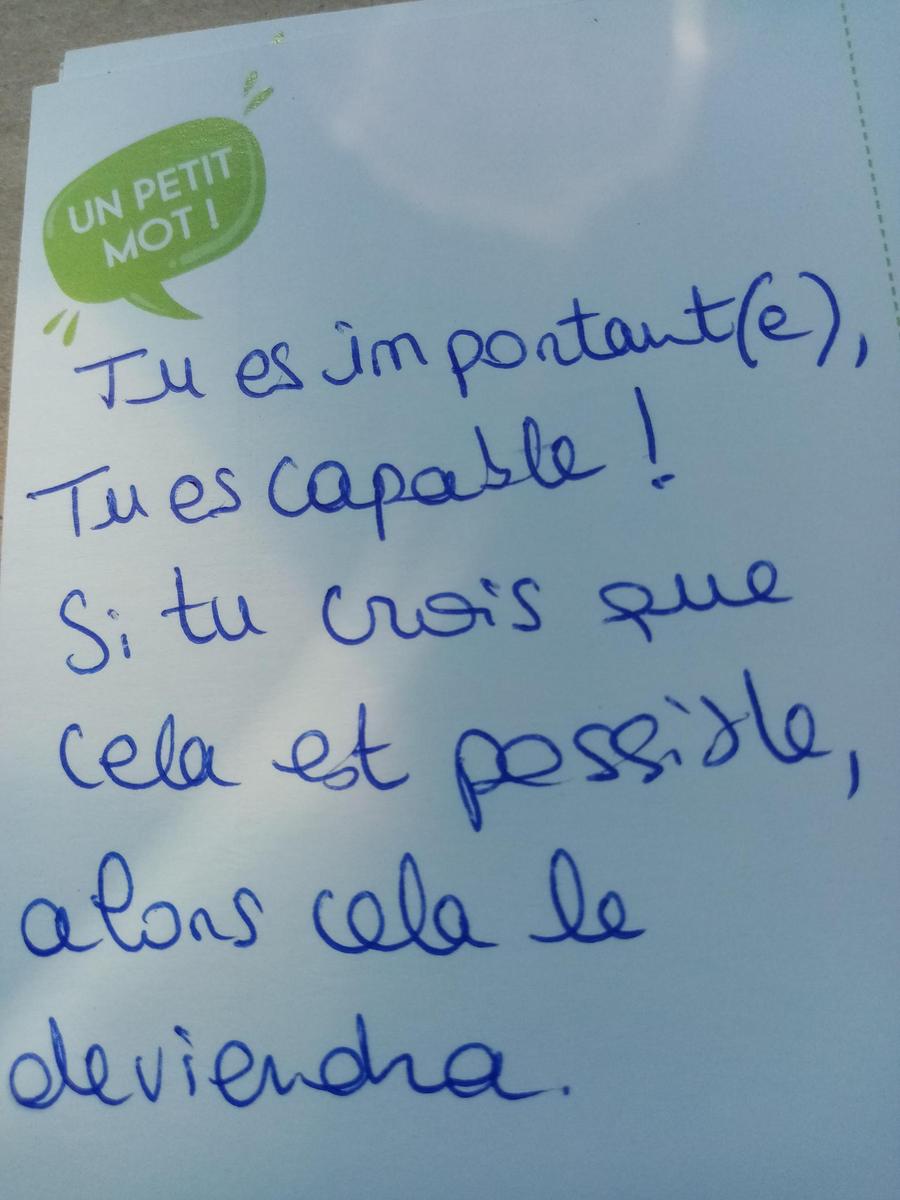 UN PETIT
MOT !
Tu es important(e),
Tu es capable !
Si tu crois que
cela est possible,
alors cela le
deviendra.